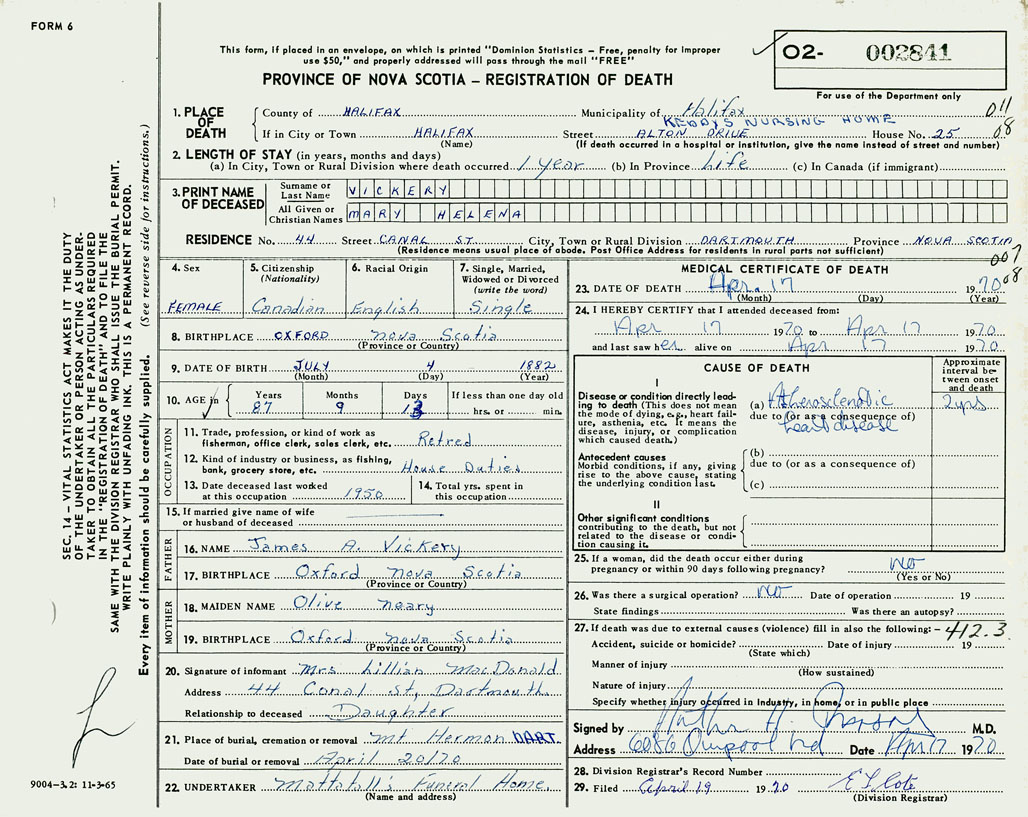 FORM 6
This form, if placed in an envelope, on which is printed "Dominion Statistics – Free, penalty for improper
use $50," and properly addressed will pass through the mail "FREE"
PROVINCE OF NOVA SCOTIA – REGISTRATION OF DEATH
O2- 002841
For use of the Department only
011
08
1. PLACE OF DEATH County of HALIFAX Municipality of Halifax
KEDDYS NURSING HOME
If in City or Town HALIFAX Street ALTON DRIVE House No. 25
(Name) (If death occurred in a hospital or institution, give the name instead of street and number)
2. LENGTH OF STAY (in years, months and days)
(a) In City, Town or Rural Division where death occurred 1 year (b) In Province Life (c) In Canada (if immigrant)
3. PRINT NAME OF DECEASED Surname or Last Name VICKERY
All Given or Christian Names MARY HELENA
RESIDENCE No. 44 Street CANAL ST. City, Town or Rural Division DARTMOUTH Province NOVA SCOTIA
(Residence means usual place of abode. Post Office Address for residents in rural parts not sufficient)
007
08
4. Sex FEMALE
5. Citizenship (Nationality) Canadian
6. Racial Origin English
7. Single, Married, Widowed or Divorced (write the word) Single
8. BIRTHPLACE OXFORD Nova Scotia
(Province or Country)
9. DATE OF BIRTH JULY 4 1882
(Month) (Day) (Year)
10. AGE in Years 87 Months 9 Days 13 If less than one day old hrs. or min.
OCCUPATION
11. Trade, profession, or kind of work as fisherman, office clerk, sales clerk, etc. Retred
12. Kind of industry or business, as fishing, bank, grocery store, etc. House Duties
13. Date deceased last worked at this occupation 1950
14. Total yrs. spent in this occupation
15. If married give name of wife or husband of deceased
FATHER
16. NAME James A. Vickery
17. BIRTHPLACE Oxford Nova Scotia
(Province or Country)
MOTHER
18. MAIDEN NAME Olive Neary
19. BIRTHPLACE Oxford Nova Scotia
(Province or Country)
20. Signature of informant Mrs Lillian MacDonald
Address 44 Canal St, Dartmouth
Relationship to deceased Daughter
21. Place of burial, cremation or removal Mt Hermon DART.
Date of burial or removal April 20/70
22. UNDERTAKER Mattatall's Funeral Home.
(Name and address)
MEDICAL CERTIFICATE OF DEATH
23. DATE OF DEATH Apr. 17 1970
(Month) (Day) (Year)
24. I HEREBY CERTIFY that I attended deceased from:
Apr 17 1970 to Apr 17 1970
and last saw her alive on Apr 17 1970
CAUSE OF DEATH
Approximate interval between onset and death
I
Disease or condition directly leading to death (This does not mean the mode of dying, e.g., heart failure, asthenia, etc. It means the disease, injury, or complication which caused death.)
(a) Atherosclerotic 2 yrs
due to (or as a consequence of)
heart disease
Antecedent causes
Morbid conditions, if any, giving rise to the above cause, stating the underlying condition last.
(b)
due to (or as a consequence of)
(c)
II
Other significant conditions contributing to the death, but not related to the disease or condition causing it.
25. If a woman, did the death occur either during pregnancy or within 90 days following pregnancy? No
(Yes or No)
26. Was there a surgical operation? No Date of operation 19
State findings Was there an autopsy?
27. If death was due to external causes (violence) fill in also the following: – 412.3
Accident, suicide or homicide? Date of injury 19
(State which)
Manner of injury
(How sustained)
Nature of injury
Specify whether injury occurred in industry, in home, or in public place
Signed by M.D.
Address 6086 Date Apr 17 1970
28. Division Registrar's Record Number
29. Filed April 19 1970
(Division Registrar)
SEC. 14 – VITAL STATISTICS ACT MAKES IT THE DUTY
OF THE UNDERTAKER OR PERSON ACTING AS UNDER-
TAKER TO OBTAIN ALL THE PARTICULARS REQUIRED
IN THE "REGISTRATION OF DEATH" AND TO FILE THE
SAME WITH THE DIVISION REGISTRAR WHO SHALL ISSUE THE BURIAL PERMIT.
WRITE PLAINLY WITH UNFADING INK. THIS IS A PERMANENT RECORD.
Every item of information should be carefully supplied. (See reverse side for instructions.)
9004-3.2: 11-3-65